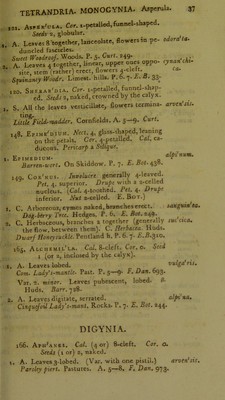 TETRANDRIA. MONOGYNIA. Asperula. 37
121. ASPER'ULA. Cor. 1-petalled, funnel-shaped.
Seeds 2, globular.
1. A. Leaves 8 together, lanceolate, flowers in pe- odora'ta.
duncled fascicles.
Sweet Woodroof. Woods. P. 5. Curt. 249.
2. A. Leaves 4 together, linear, upper ones oppo- cynan'chi-
site, stem (rather) erect, flowers 4-cleft. ca.
Squinancy Woodr. Limest. hills. P. 6. 7. E. B. 33.
120. SHERAR'DIA. Cor. 1-petalled, funnel-shap-
ed. Seeds 2, naked, crowned by the calyx.
1. S. All the leaves verticillate, flowers termina- arven'sis.
ting.
Little Field-madder. Cornfields. A. 5—9. Curt.
148. EPIM'DIUM. Nect. 4, glass-shaped, leaning
on the petals. Cor. 4-petalled. Cal. ca-
ducous. Pericarp a Silique.
1. EPIMEDIUM. alpi'num.
Barren-wort. On Skiddow. P. 7. E. Bot. 438.
149. COR'NUS. Involucre generally 4-leaved.
Pet. 4, superior. Drupe with a 2-celled
nucleus. (Cal. 4-toothed. Pet. 4. Drupe
inferior. Nut 2-celled. E. BOT.)
1. C. Arboreous, cymes naked, branches erect. sanguin'ea.
Dog-berry Tree. Hedges. P. 6. E. Bot. 249.
2. C. Herbaceous, branches 2 together (generally sue'cica.
the flow. between them). C. Herbacea. Huds.
Dwarf Honeysuckle. Pentland h. P. 6. 7. E. B. 310.
164. ALCHEMIL'LA. Cal. 8-cleft. Cor. 0. Seed
1 (or 2, inclosed by the calyx).
1. A. Leaves lobed. vulga'ris.
Com. Lady's-mantle. Past. P. 5—9. F. Dan. 693.
Var. 2. minor. Leaves pubescent, lobed. β.
Huds. Barr. 728.
2. A. Leaves digitate, serrated. alpi'na.
Cinquefoil Lady's-mant. Rocks. P. 7. E. Bot. 244.
DIGYNIA.
166. APH'ANES. Cal. (4 or) 8-cleft. Cor. 0.
Seeds (1 or) 2, naked.
1. A. Leaves 3-lobed. (Var. with one pistil.) arven'sis.
Parsley piert. Pastures. A. 5—8. F. Dan. 973.